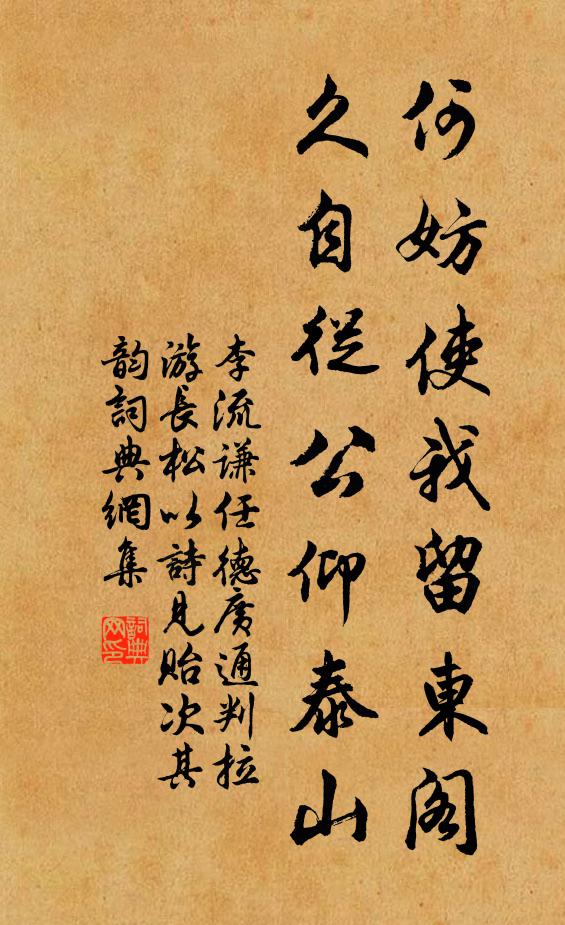 何妨使我留東閣
久自從公仰泰山
李流謙任德廣通判拉
游長松以詩見貽次其
韵詞典網集
詞典
网印